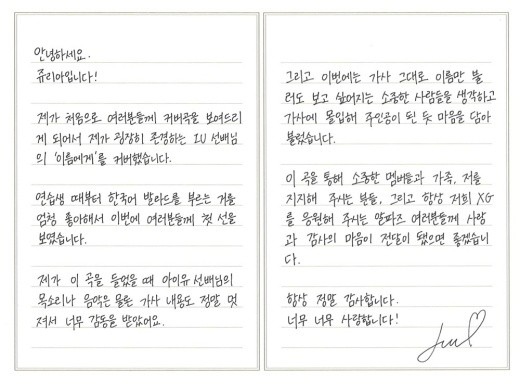 안녕하세요.
쥬리아입니다!
제가 처음으로 여러분들께 커버곡을 보여드리
게 되어서 제가 굉장히 존경하는 IU 선배님
의 '이름에게'를 커버했습니다.
연습생 때부터 한국어 발라드를 부르는 거를
엄청 좋아해서 이번에 여러분들께 첫 선을
보였습니다.
제가 이 곡을 들었을 때 아이유 선배님의
목소리나 음악은 물론 가사 내용도 정말 멋
져서 너무 감동을 받았어요.
그리고 이번에는 가사 그대로 이름만 불
러도 보고 싶어지는 소중한 사람들을 생각하고
가사에 몰입해 주인공이 된 듯 마음을 담아
불렀습니다.
이 곡을 통해 소중한 멤버들과 가족, 저를
지지해 주시는 분들, 그리고 항상 저희 XG
를 응원해 주시는 알파즈 여러분들께 사랑
과 감사의 마음이 전달이 됐으면 좋겠습니
다.
항상 정말 감사합니다.
너무 너무 사랑합니다!